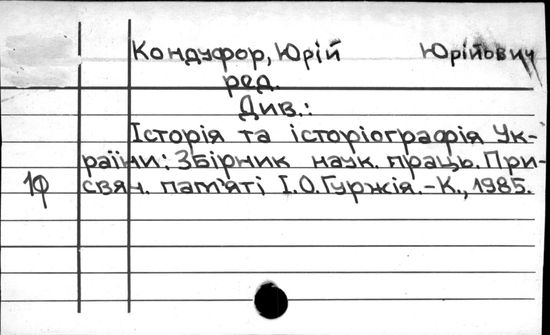 Кондуфор, Юрій Юрійович
ред.
Див.:
Історія та історіографія Ук-
раїни: Збірник наук. праць. При-
свяч. пам'яті І.О.Гуржія.-К., 1985.
1ф